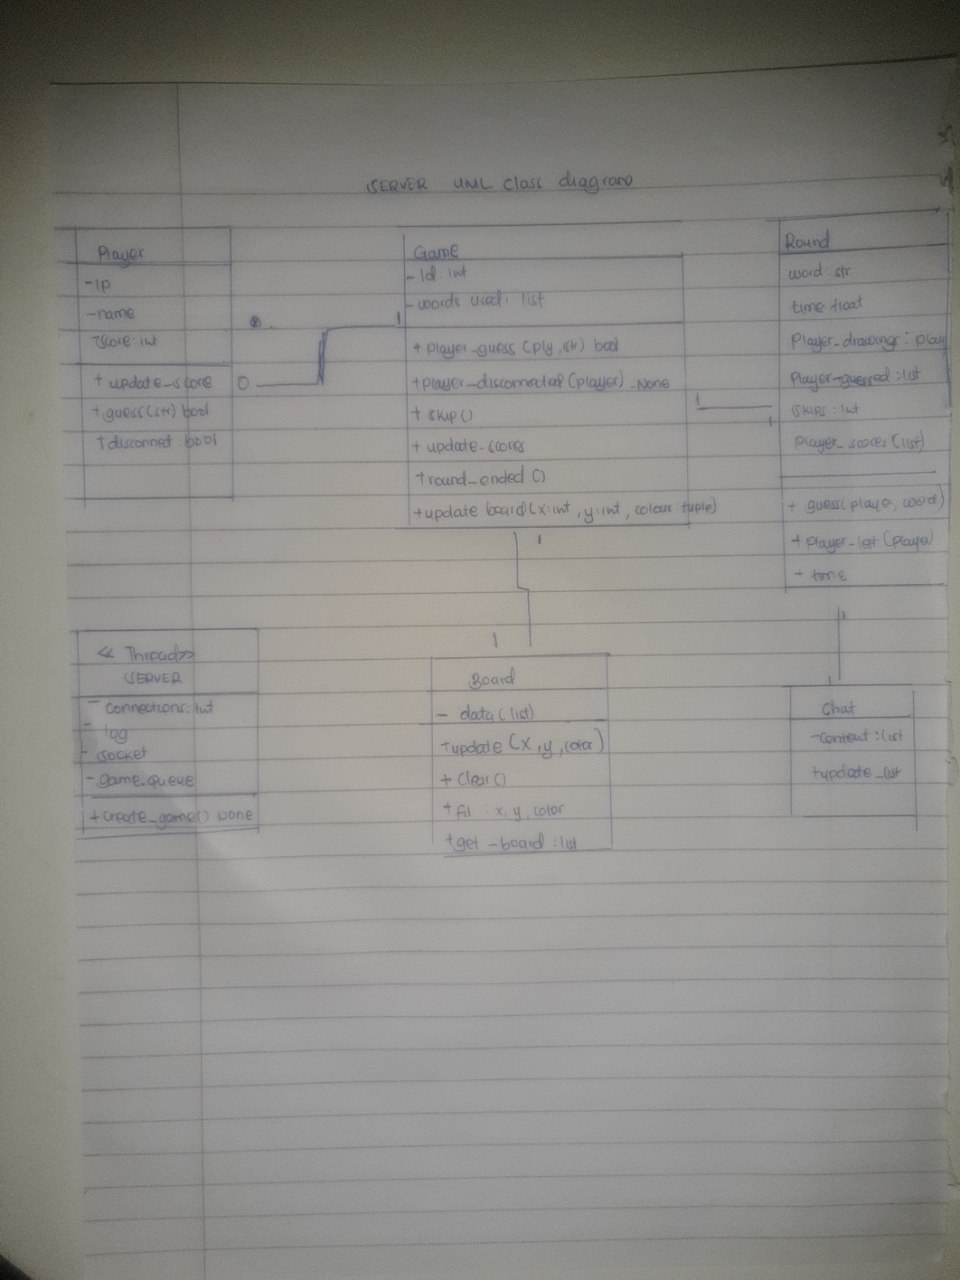 SERVER UML Class diagram
Player
-Ip
-name
-score: int
+ update_score
+ guess(str) bool
+ disconnet: bool
0
1
Game
- Id: int
- words used: list
+ player_guess (ply, str) bool
+ player_disconnected (player) _None
+ skip ()
+ update_scores
+ round_ended ()
+ update board (x:int, y:int, colour tuple)
1
1
Round
word: str
time float
Player_drawings: play
Player-guessed: list
skips: int
player_scores (list)
+ guess(player, word)
+ player_left (player)
- time
1
1
<< Thread>>
SERVER
- Connections: int
- log
- socket
- game.queue
+ create_game() None
1
1
Board
- data (list)
+ update (x, y, color)
+ clear ()
+ fil : x, y, color
+ get -board: list
1
1
Chat
- content: list
+ update_list